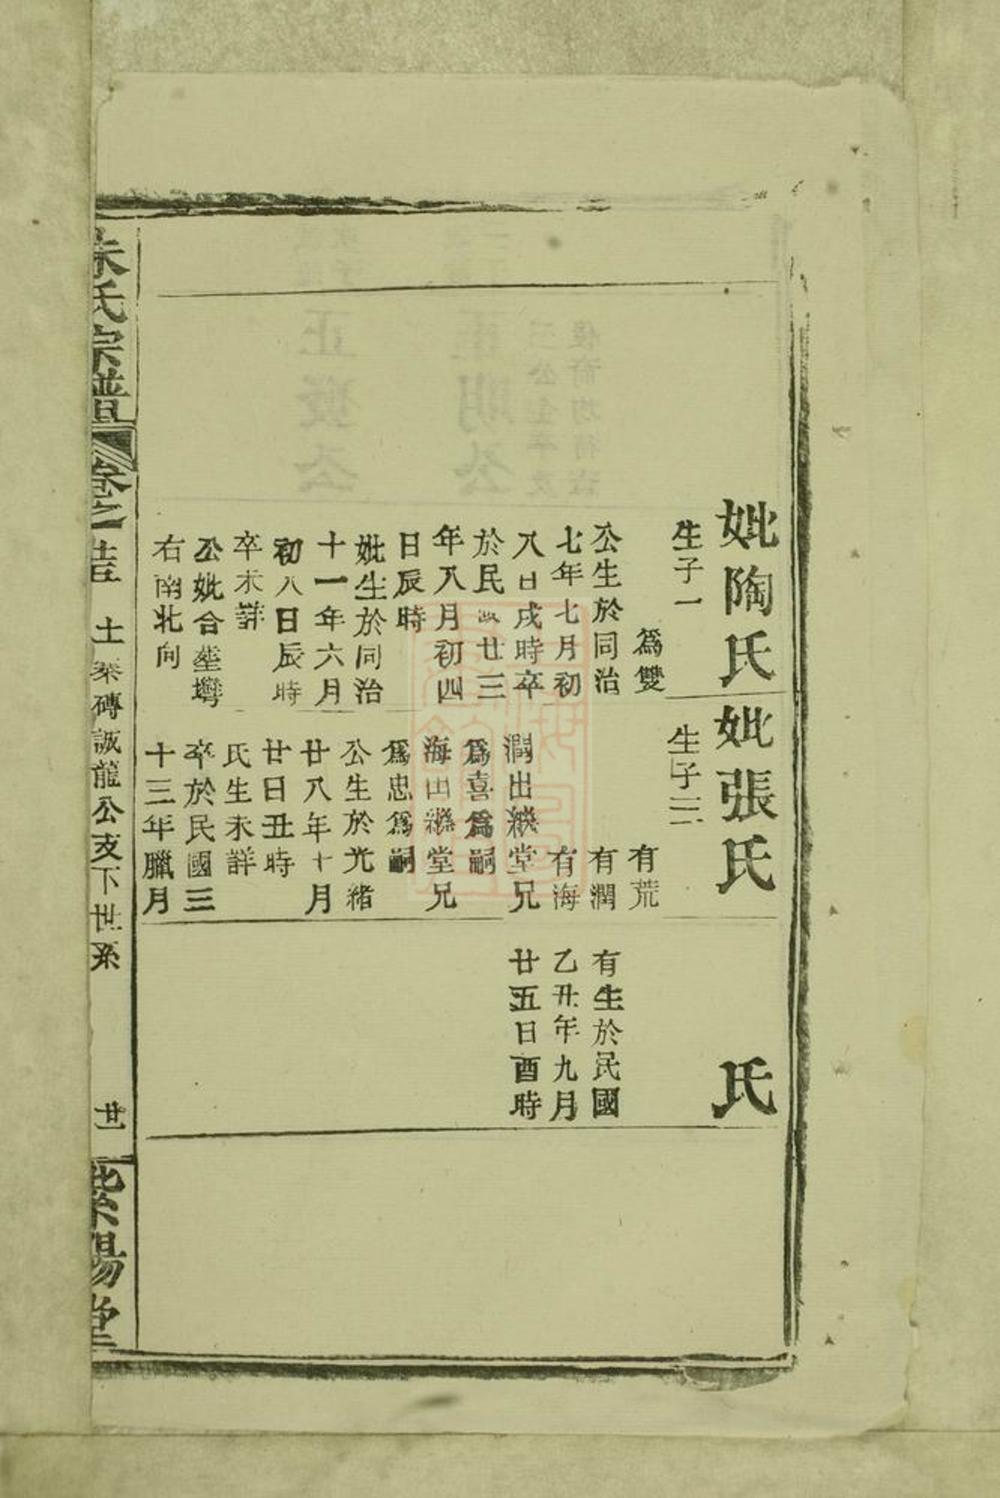 妣陶氏
生子一
爲雙
公生於同治
七年七月初
八日戌時卒
於民國廿三
年八月初四
日辰時
妣生於同治
十一年六月
初八日辰時
卒未詳
公妣合塋塆
右南北向
妣張氏
生子三
有荒
有潤
有海
潤出繼堂兄
爲喜爲嗣
海出繼堂兄
爲忠爲嗣
公生於光緒
廿八年十月
廿日丑時
氏生未詳
卒於民國三
十三年臘月
氏
有生於民國
乙丑年九月
廿五日酉時
朱氏宗譜
卷之
土 磚 龍公支下世系
廿一
紫陽堂